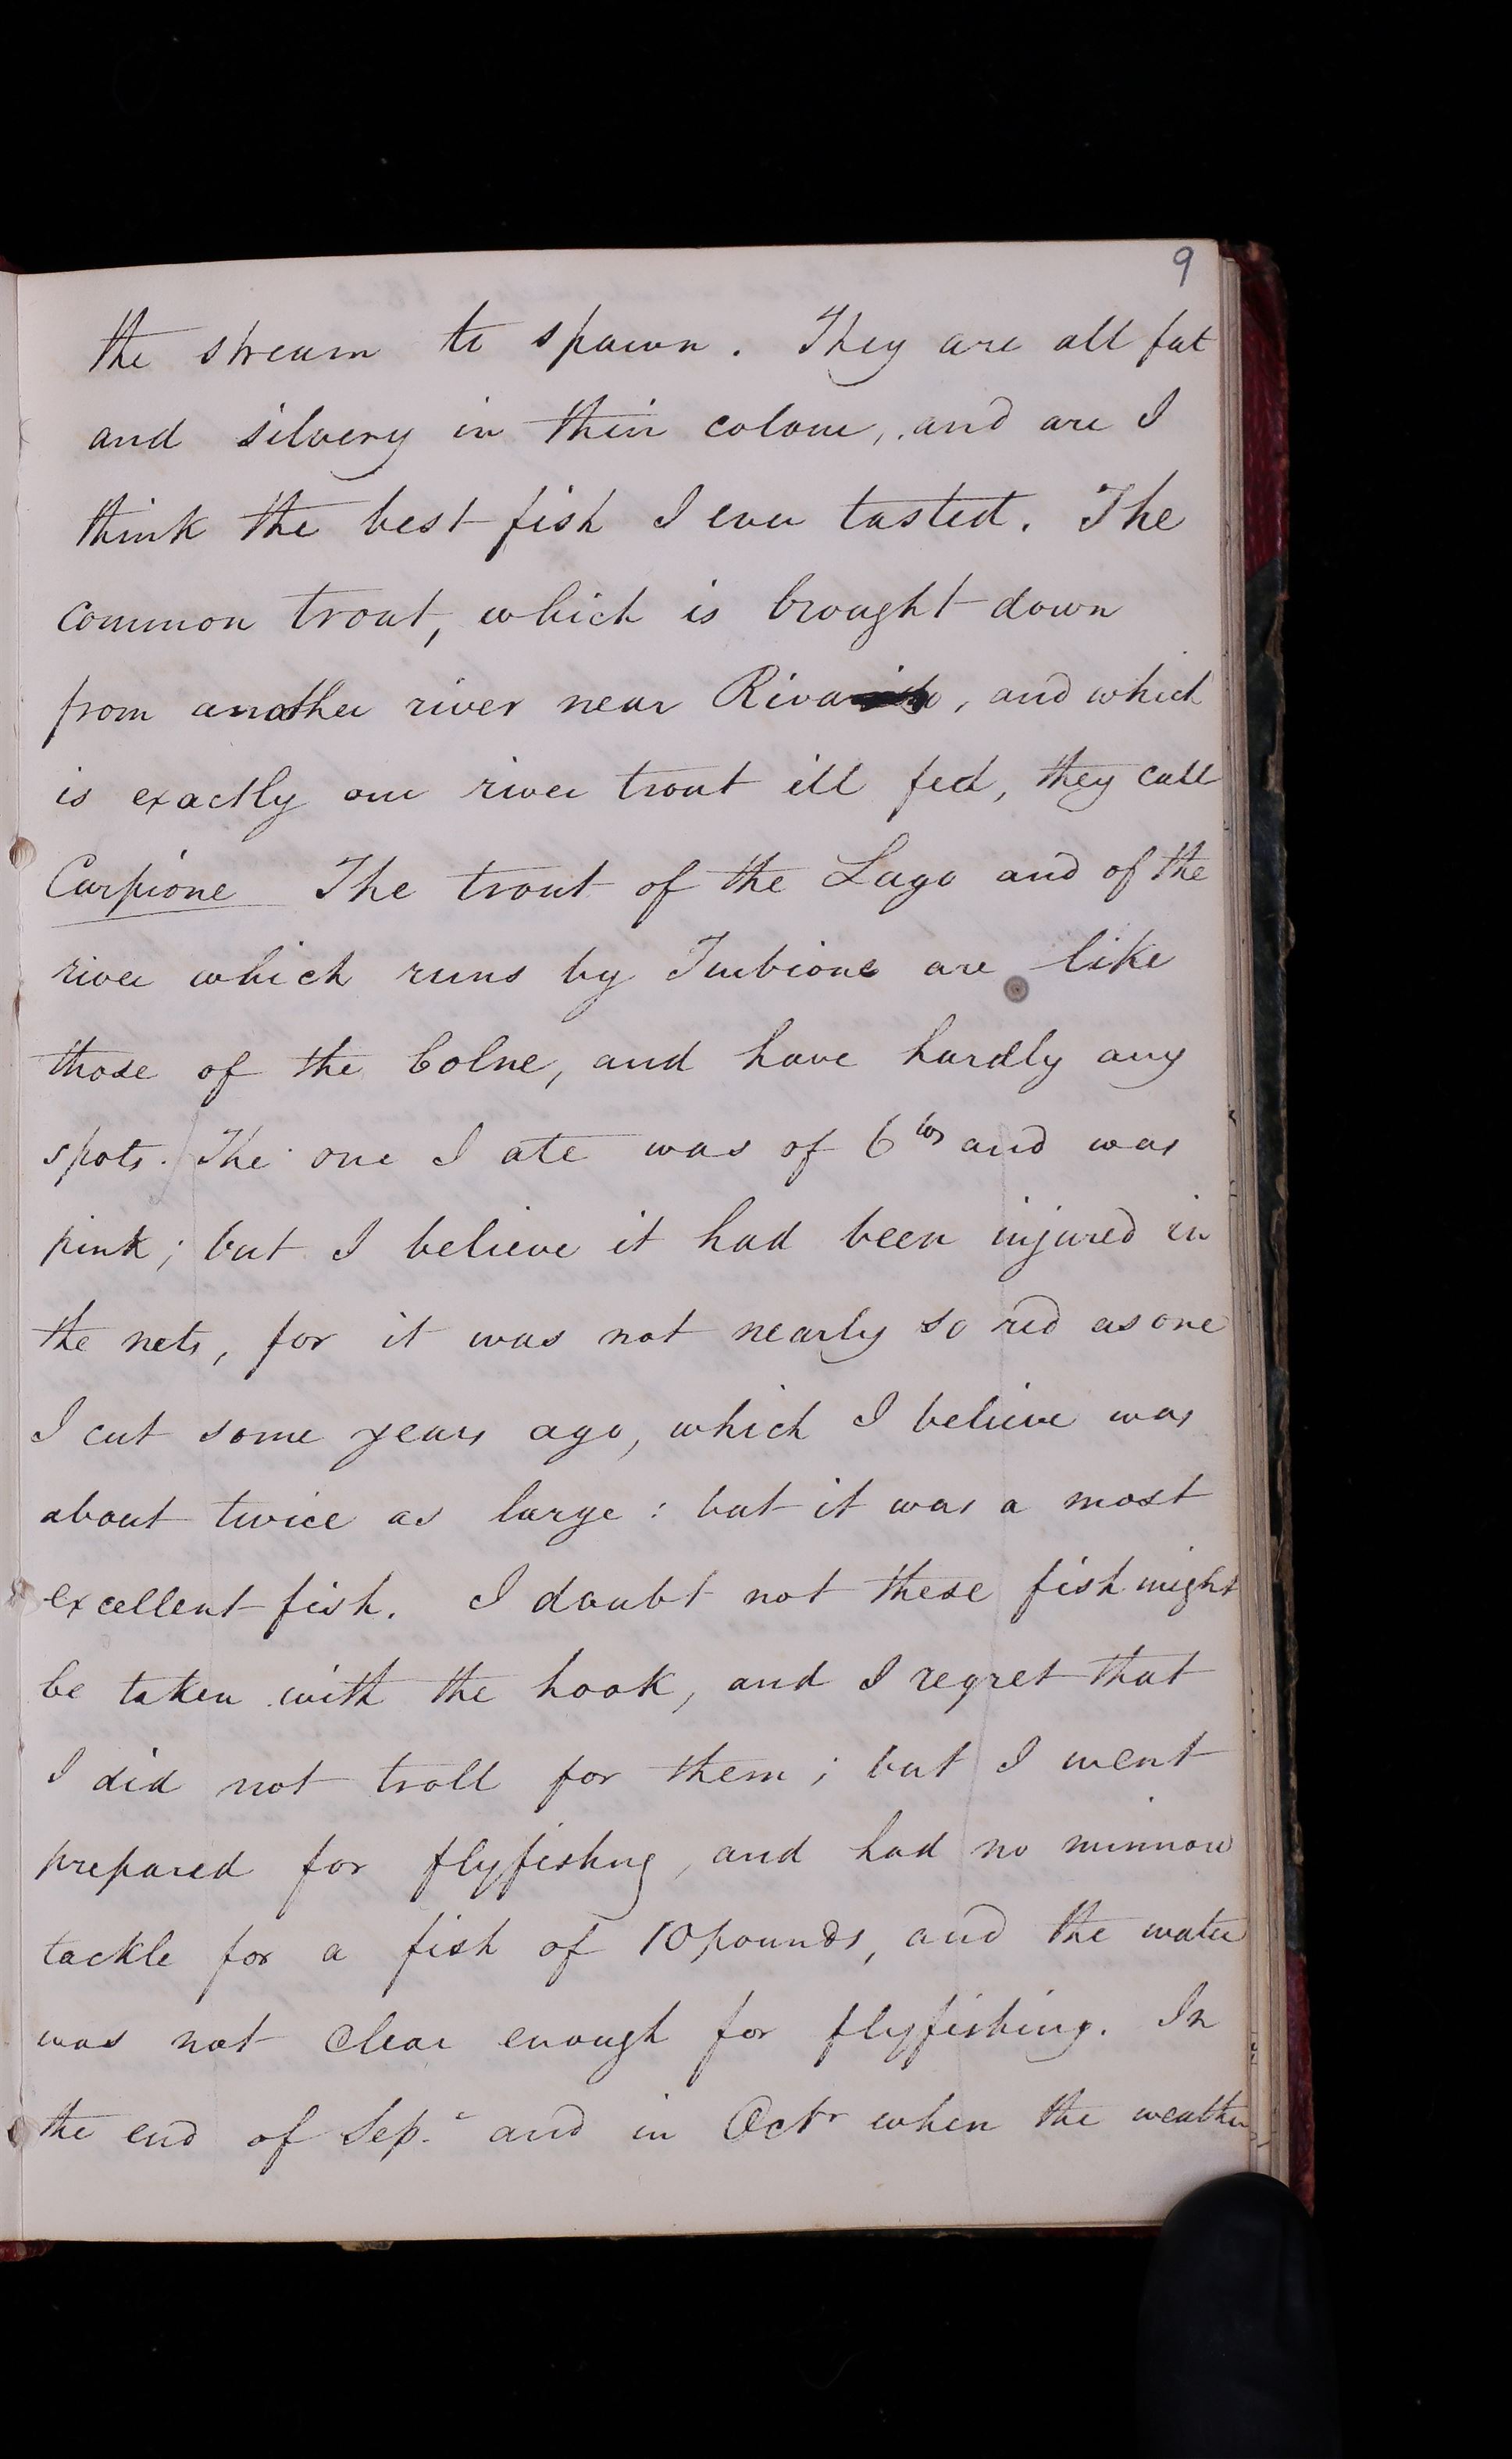 9
the stream to spawn. They are all fat
and silvery in their colour, and are I
think the best fish I ever tasted. The
common trout, which is brought down
from another river near Riva, and which
is exactly our river trout ill fed, they call
Carpione The trout of the Lago and of the
river which runs by Turbione are like
those of the Colne, and have hardly any
spots. The one I ate was of 6 lbs and was
pink; but I believe it had been injured in
the nets, for it was not nearly so red as one
I cut some years ago, which I believe was
about twice as large: but it was a most
excellent fish. I doubt not these fish might
be taken with the hook, and I regret that
I did not troll for them; but I went
prepared for flyfishng, and had no minnow
tackle for a fish of 10 pounds, and the water
was not clear enough for flyfishing. In
the end of Sep.r and in Octr when the weather